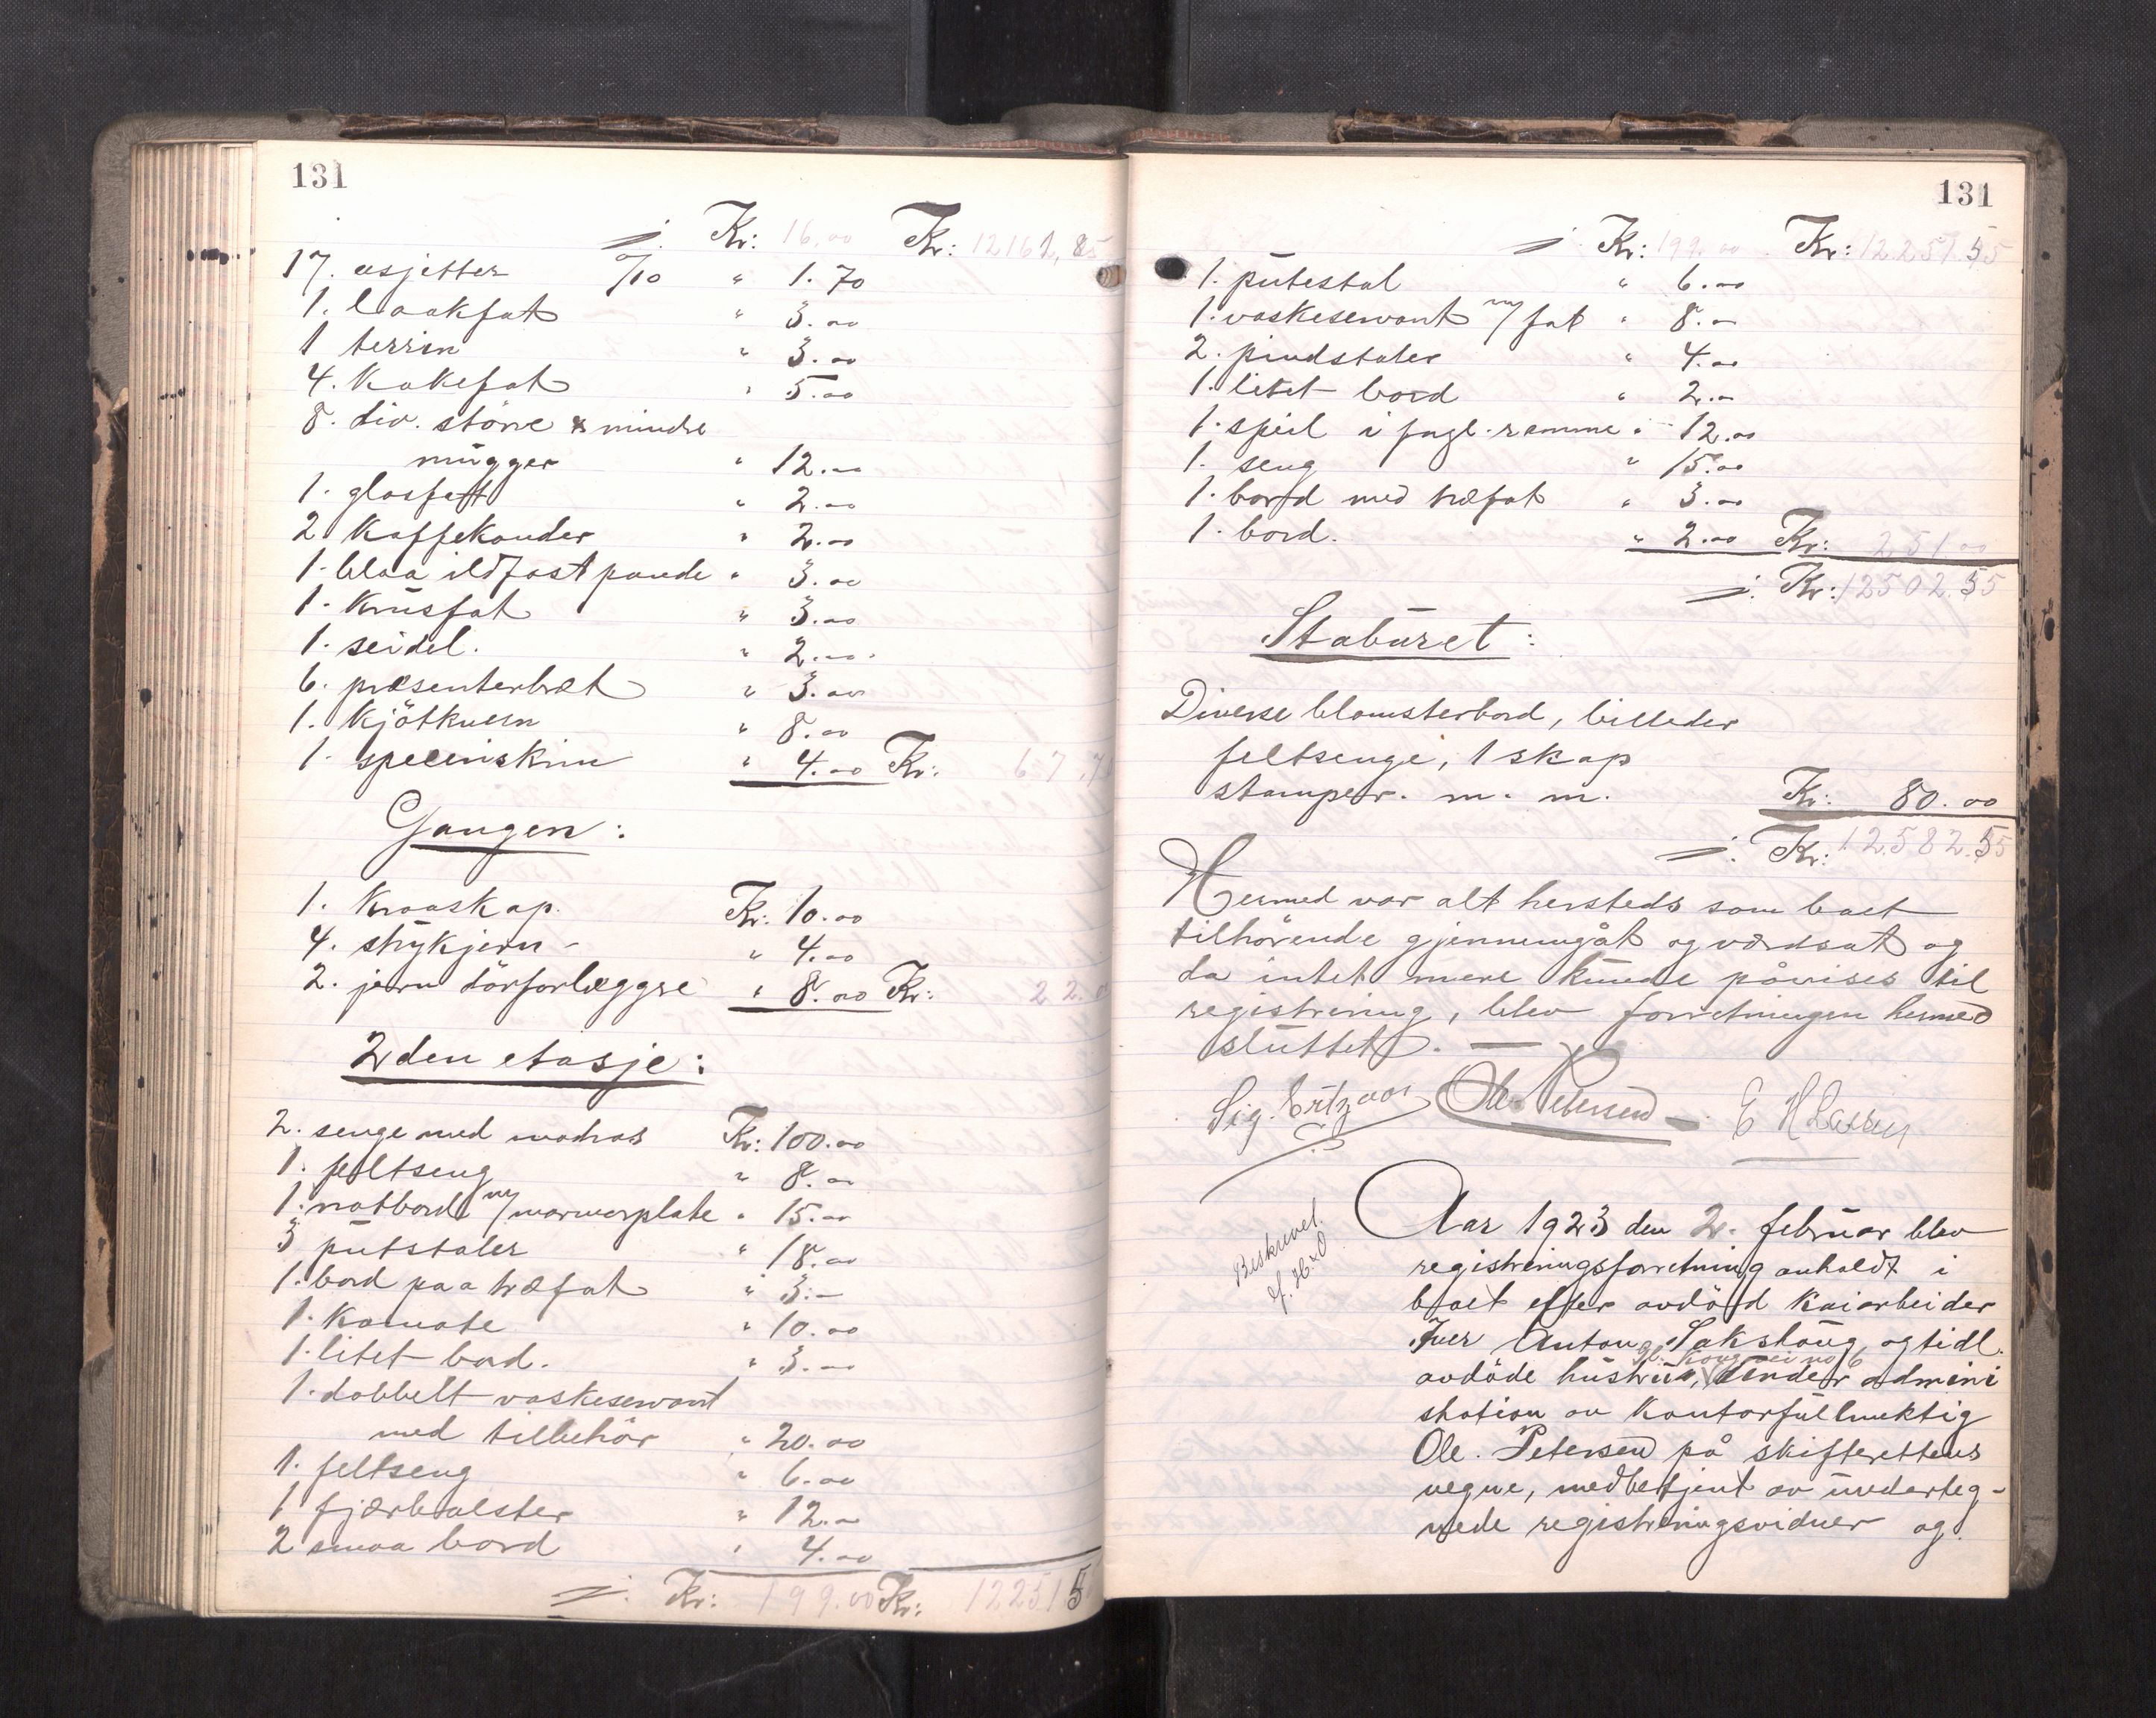 131
". Kr: 16.00 Kr: 12161,85
17. asjetter a/10 " 1.70
1. laakfat " 3.00
1 terrin " 3.00
4. Kakefat " 5.00
8. div. større & mindre
mugger " 12.00
1. glasfatt " 2.00
2 Kaffekander " 2.00
1. blaa ildfast pande " 3.00
1. Krusfat " 3.00
1. seidel. " 2.00
6. præsenterbræt " 3.00
1. Kjötkuern " 8.00
1. " 4.00 Kr: 67.7
Gangen:
1. Kroaskap. Kr: 10.00
4. strykjern - " 4.00
2. jern dörforlæggre " 8.00 Kr: 22.0
2den etasje:
2. senge med madras Kr: 100.00
1. feltseng " 8.00
1. natbord m/ marmorplate " 15.00
3 putstoler " 18.00
1. bord paa træfat " 3.-
1. Komode " 10.00
1. litet bord. " 3.00
1. dobbelt vaskeservant
med tilbehör " 20.00
1. feltseng " 6.00
1 fjærbolster " 12.00
2 smaa bord " 4.00
". Kr: 199.00 Kr: 122515
131
". Kr: 199.00 Kr: 12251 55
1. putestol " 6.00
1. vaskeservant m/ fat " 8.-
2. pindstoler " 4.00
1. litet bord " 2.-
1. speil i fugl. ramme " 12.00
1. seng " 15.00
1. bord med træfat " 3.00
1. bord. " 2.00 Kr: 251.00
". Kr: 12502.55
Staburet:
Diverse blomsterbord, billeder
feltsenge, 1 skap
stamper. m. m. Kr: 80.00
". Kr: 12582.55
Hermed var alt hersteds som boet
tilhörende gjennemgåt og værdsat og
da intet mere kunde påvises til
registrering, blev forretningen hermed
sluttet. —
Sig. Ole Petersen E H Larsen
Beskrevet.
Aar 1923 den 2. februar blev
registreringsforretning anholdt i
boet efter avdöd Kaiarbeider
Iver Anton Sakshaug og tidl.
gl. Kongevei no 6
avdöde hustru, under admini
stration av Kontorfullmektig
Ole. Petersen på skifterettens
vegne, medbetjent av underteg-
nede registreringsvidner og.